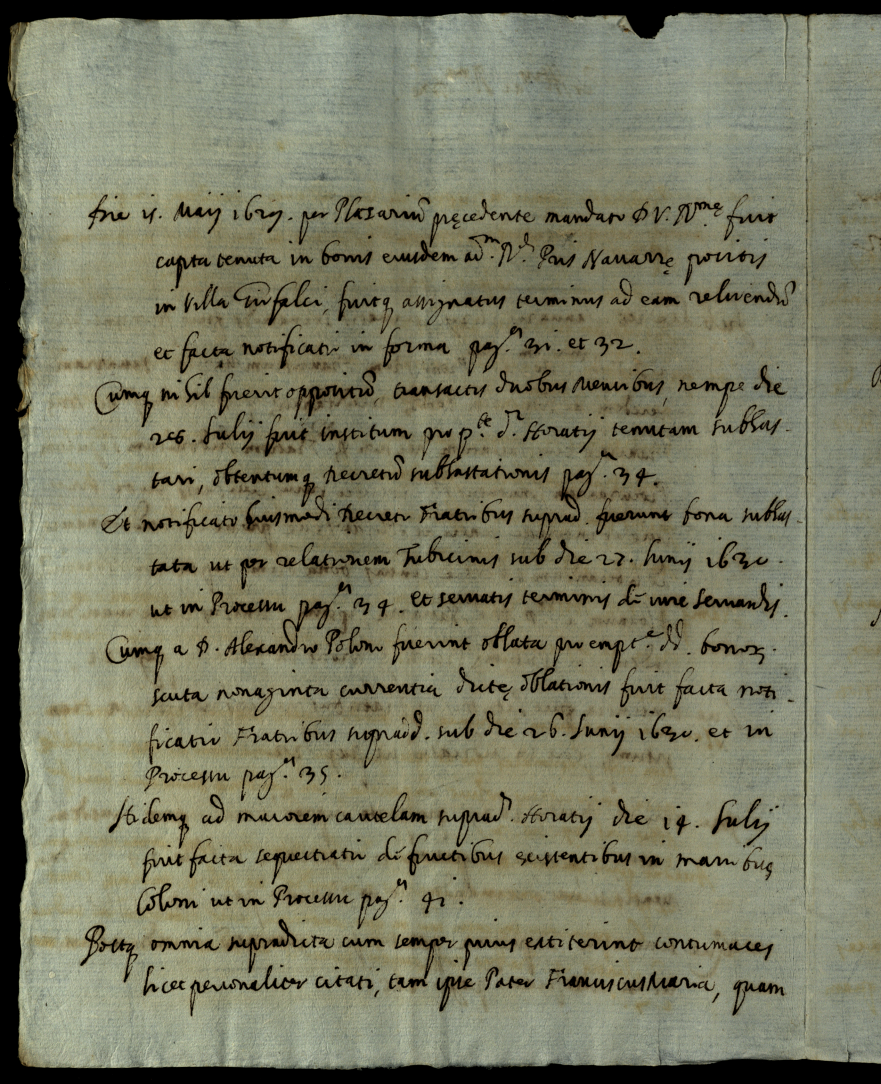 die 15. Maij 1629. per Plazariũ pręcedente mandato D V. Ill.mę fuit
capta tenuta in bonis eiusdem ad.m R.di Pris Navarrę positis
in Villa falci, fuitq assignatus terminus ad eam reluendũ
et facta notificatio in forma pag.a 31. et 32.
Cumq nihil fuerit oppositũ, transactis duobus Mensibus, nempe die
26. Julij fuit institum pro p.te d. Horatij tenutam subhas-
tari, obtentumq Decretũ subhastationis pag.a 34.
Et notificato huiusmodi Decreto Fratribus suprad. fuerunt bona subhas-
tata ut per relationem Tubicinis sub die 27. Junij 1630.
ut in Processu pag.a 34. et servatis terminis de iure servandis.
Cumq a D. Alexandro Poloni fuerint oblata pro empt.e dd. bonorꝫ.
scuta nonaginta currentia dictę oblationis fuit facta noti-
ficatio Fratribus supradd. sub die 26. Junij 1630. et in
Processu pag.a 35.
Itidemq ad maiorem cautelam suprad. Horatij die 14. Julij
fuit facta sequestratio de fructibus existentibus in manibus
Coloni ut in Processu pag.a 41.
Postq omnia supradicta cum semper prius extiterint contumaces
licet personaliter citati, tam ipse Pater Franciscus Maria, quam